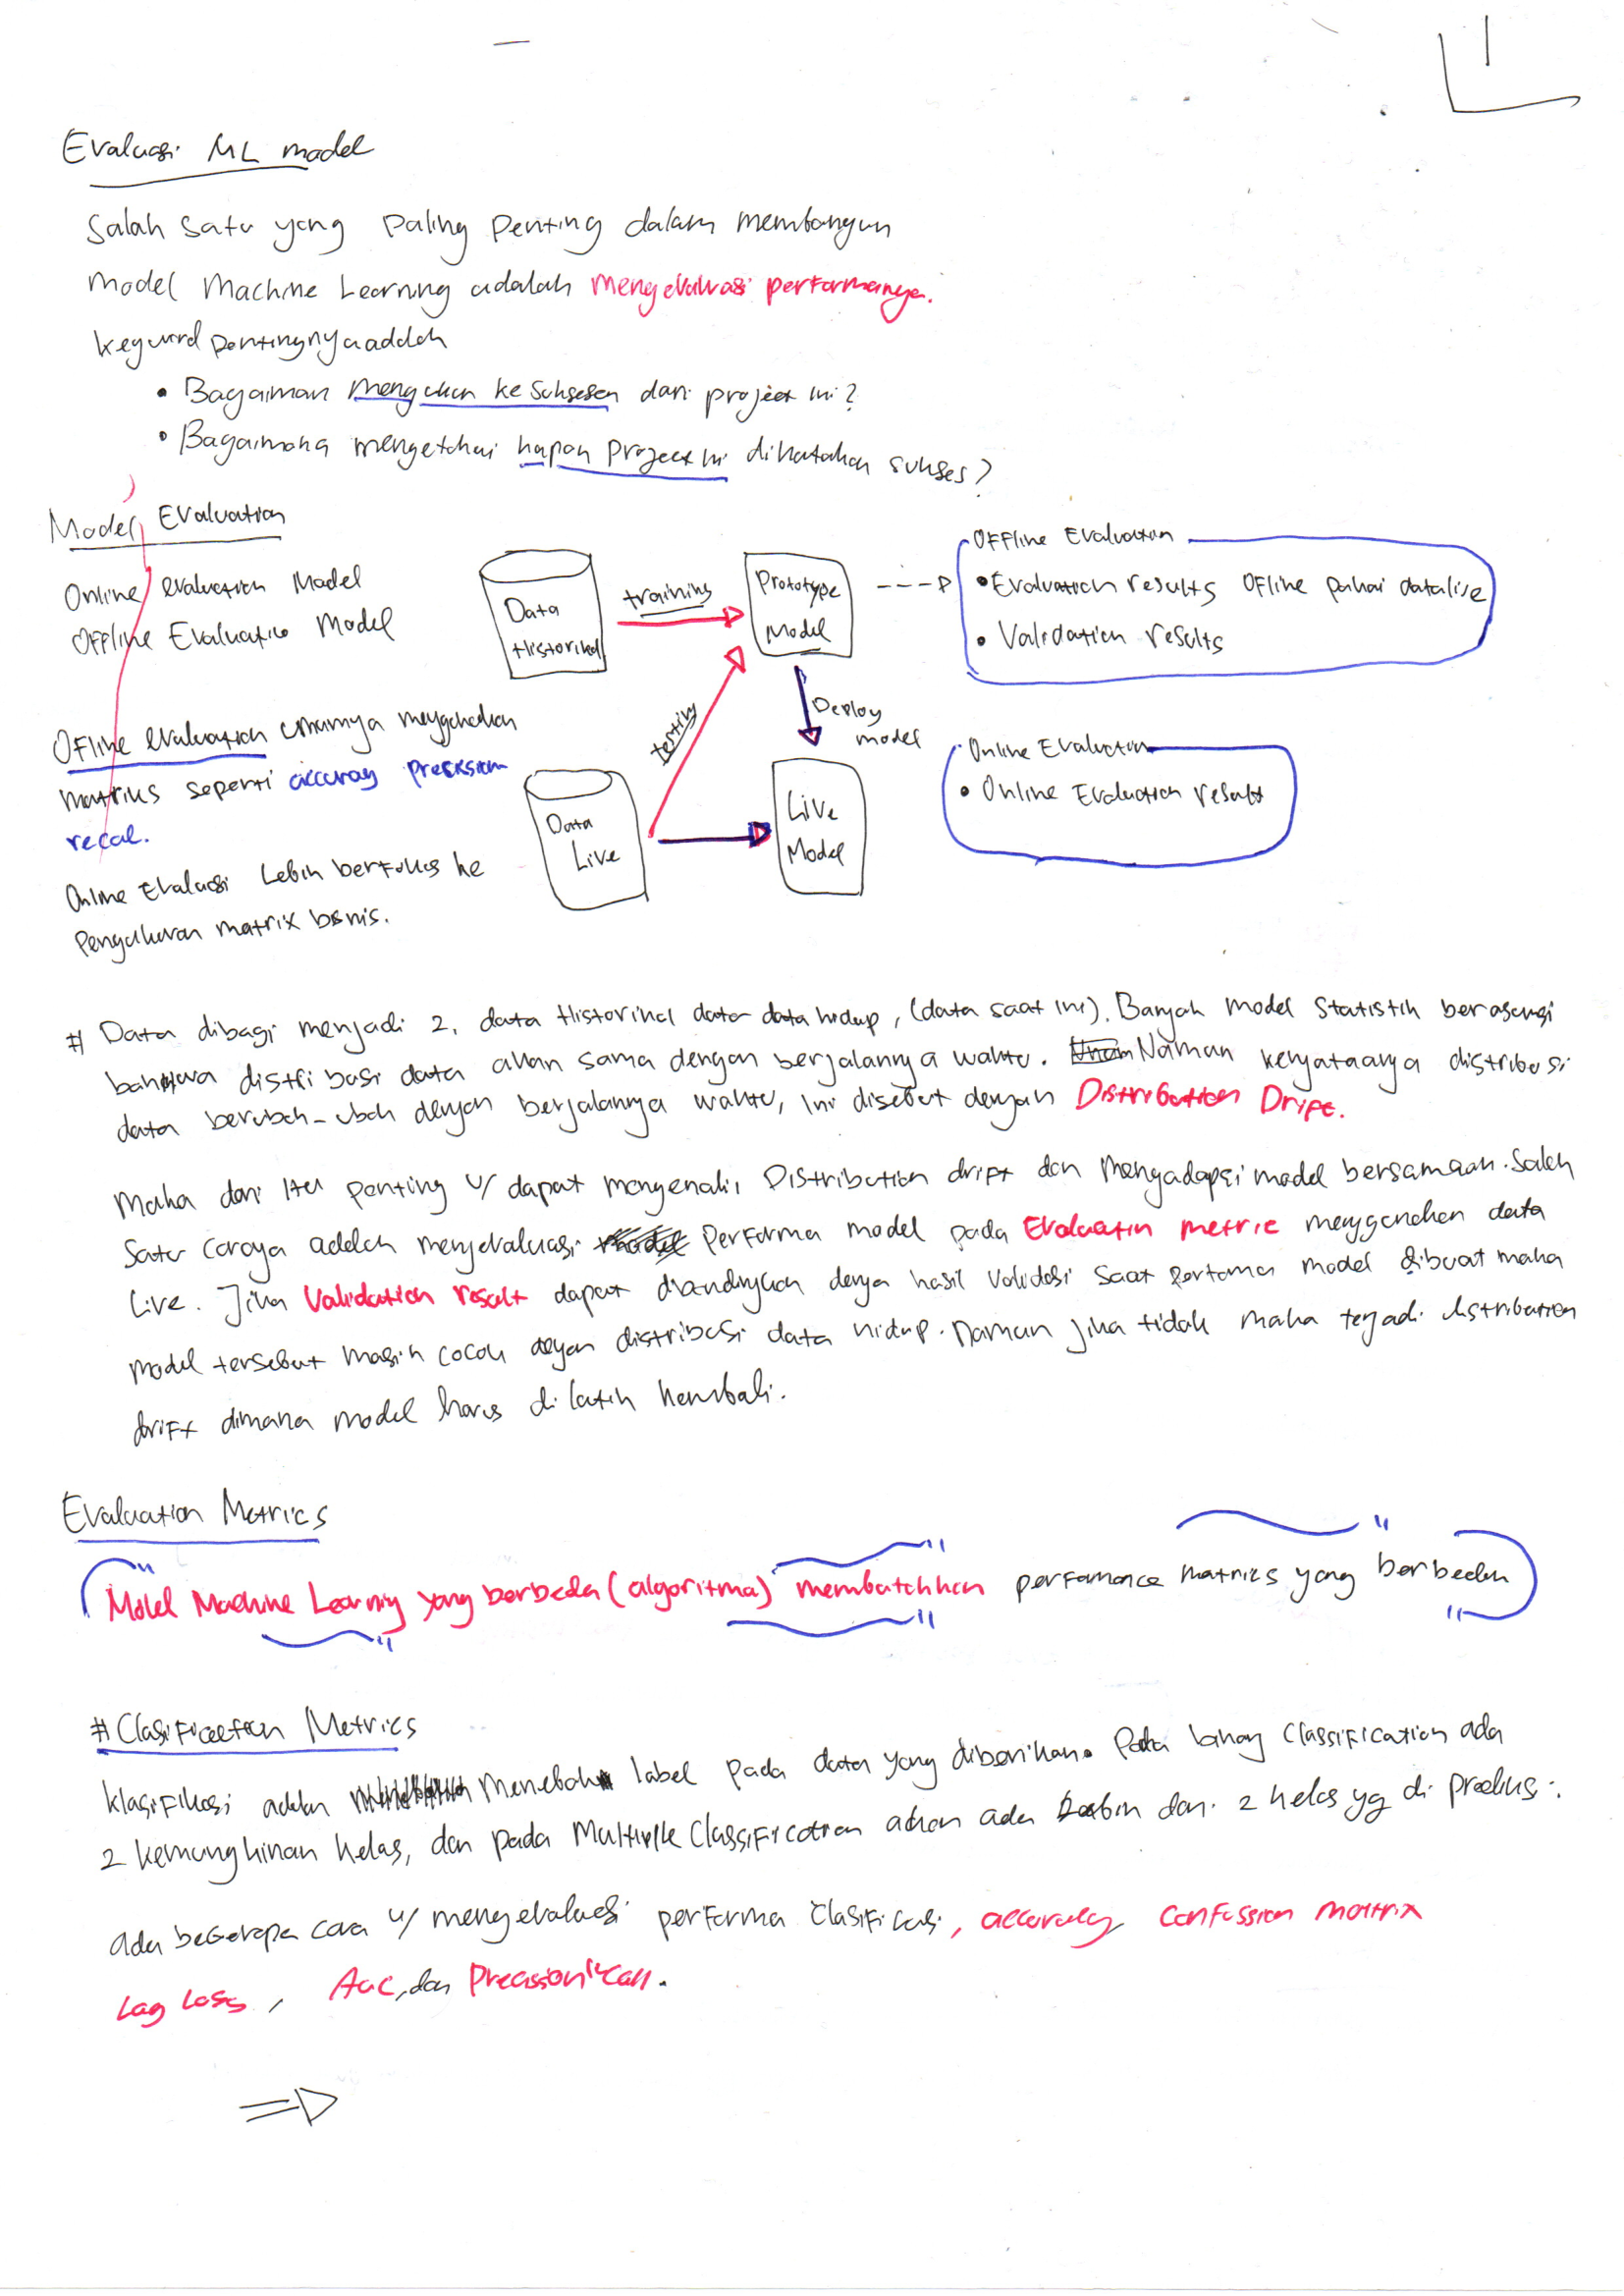 1
Evaluasi ML model
Salah satu yang paling penting dalam membangun
model Machine Learning adalah mengevaluasi performanya.
keyword pentingnya adalah
• Bagaiman mengukur kesuksesan dari project ini?
• Bagaimana mengetahui kapan project ini dikatakan sukses?
Model Evaluation
Online evaluation Model
Offline Evaluatio Model
Data
Historikal
training
Prototype
Model
Offline Evaluation
• Evaluation results Ofline pakai datalive
• Validation results
testing
Deploy
model
Ofline evaluation umumnya menggunakan
matriks seperti accuracy precission
recal.
Online Evaluasi Lebih berfokus ke
Pengukuran matrix bisnis.
Data
Live
Live
Model
Online Evaluation
• Online Evaluation result
# Data dibagi menjadi 2, data Historikal data data hidup, (data saat ini). Banyak model Statistik berasumsi
bahwa distribusi data akan sama dengan berjalannya waktu. Namun kenyataanya distribusi
data berubah-ubah dengan berjalannya waktu, ini disebut dengan Distribution Drift.
Maka dari itu penting u/ dapat mengenali Distribution drift dan mengadapsi model bersamaan. Salah
satu caraya adalah mengevaluasi performa model pada Evaluatin metric menggunakan data
Live. Jika Validation result dapat dibandingkan dengan hasil validasi saat pertama model dibuat maka
model tersebut masih cocok dengan distribusi data hidup. namun jika tidak maka terjadi distribution
drift dimana model harus di latih kembali.
Evaluation Metrics
Model Machine Learning yang berbeda (algoritma) membutuhkan performance matrics yang berbeda
# Clasification Metrics
klasifikasi adalah menebak label pada data yang diberikan. Pada binary classification ada
2 kemungkinan kelas, dan pada Multiple Classification akan ada lebih dari 2 kelas yg di prediksi.
ada beberapa cara u/ mengevaluasi performa Clasifikasi, accuracy confussion matrix
Log Loss, AUC, dan Precission recall.